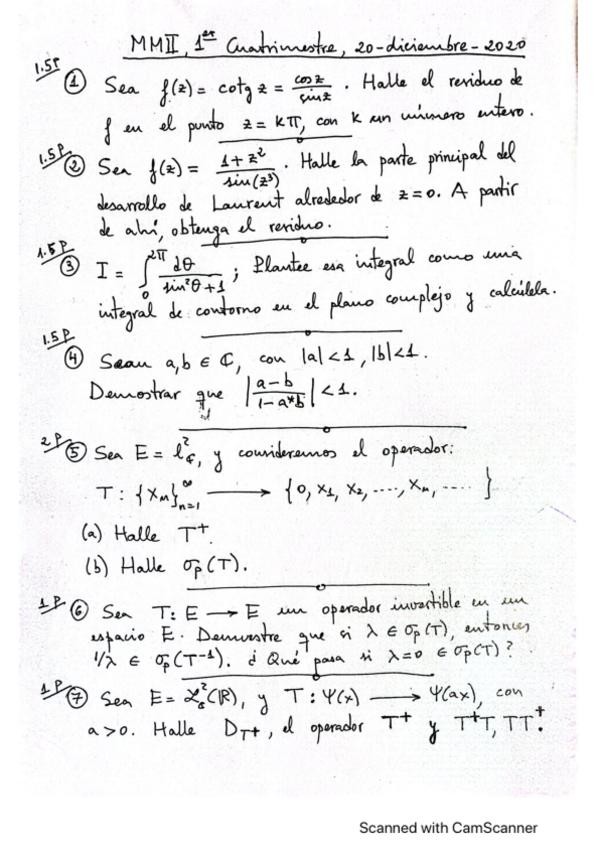 MMII, 1er Cuatrimestre, 20-diciembre-2020
1.5P
① Sea f(z) = cotg z = cos z / sin z. Halle el residuo de
f en el punto z = kπ, con k un número entero.
1.5P
② Sea f(z) = (1+z²)/sin(z³). Halle la parte principal del
desarrollo de Laurent alrededor de z=0. A partir
de ahí, obtenga el residuo.
1.5P
③ I = ∫₀^2π dθ/(sin²θ+1); Plantee esa integral como una
integral de contorno en el plano complejo y calcúlela.
1.5P
④ Sean a,b ∈ ℂ, con |a|<1, |b|<1.
Demostrar que |(a-b)/(1-a*b)| < 1.
2P
⑤ Sea E = l²_ℂ, y consideremos el operador:
T: {xₙ}_{n=1}^∞ ⟶ {0, x₁, x₂, ...., xₙ, .... }
(a) Halle T⁺.
(b) Halle σp(T).
1P
⑥ Sea T: E ⟶ E un operador invertible en un
espacio E. Demuestre que si λ ∈ σp(T), entonces
1/λ ∈ σp(T⁻¹). ¿Qué pasa si λ=0 ∈ σp(T)?
1P
⑦ Sea E = ℒ²_ℂ(ℝ), y T: Ψ(x) ⟶ Ψ(ax), con
a>0. Halle D_T⁺, el operador T⁺ y T⁺T, TT⁺.
Scanned with CamScanner